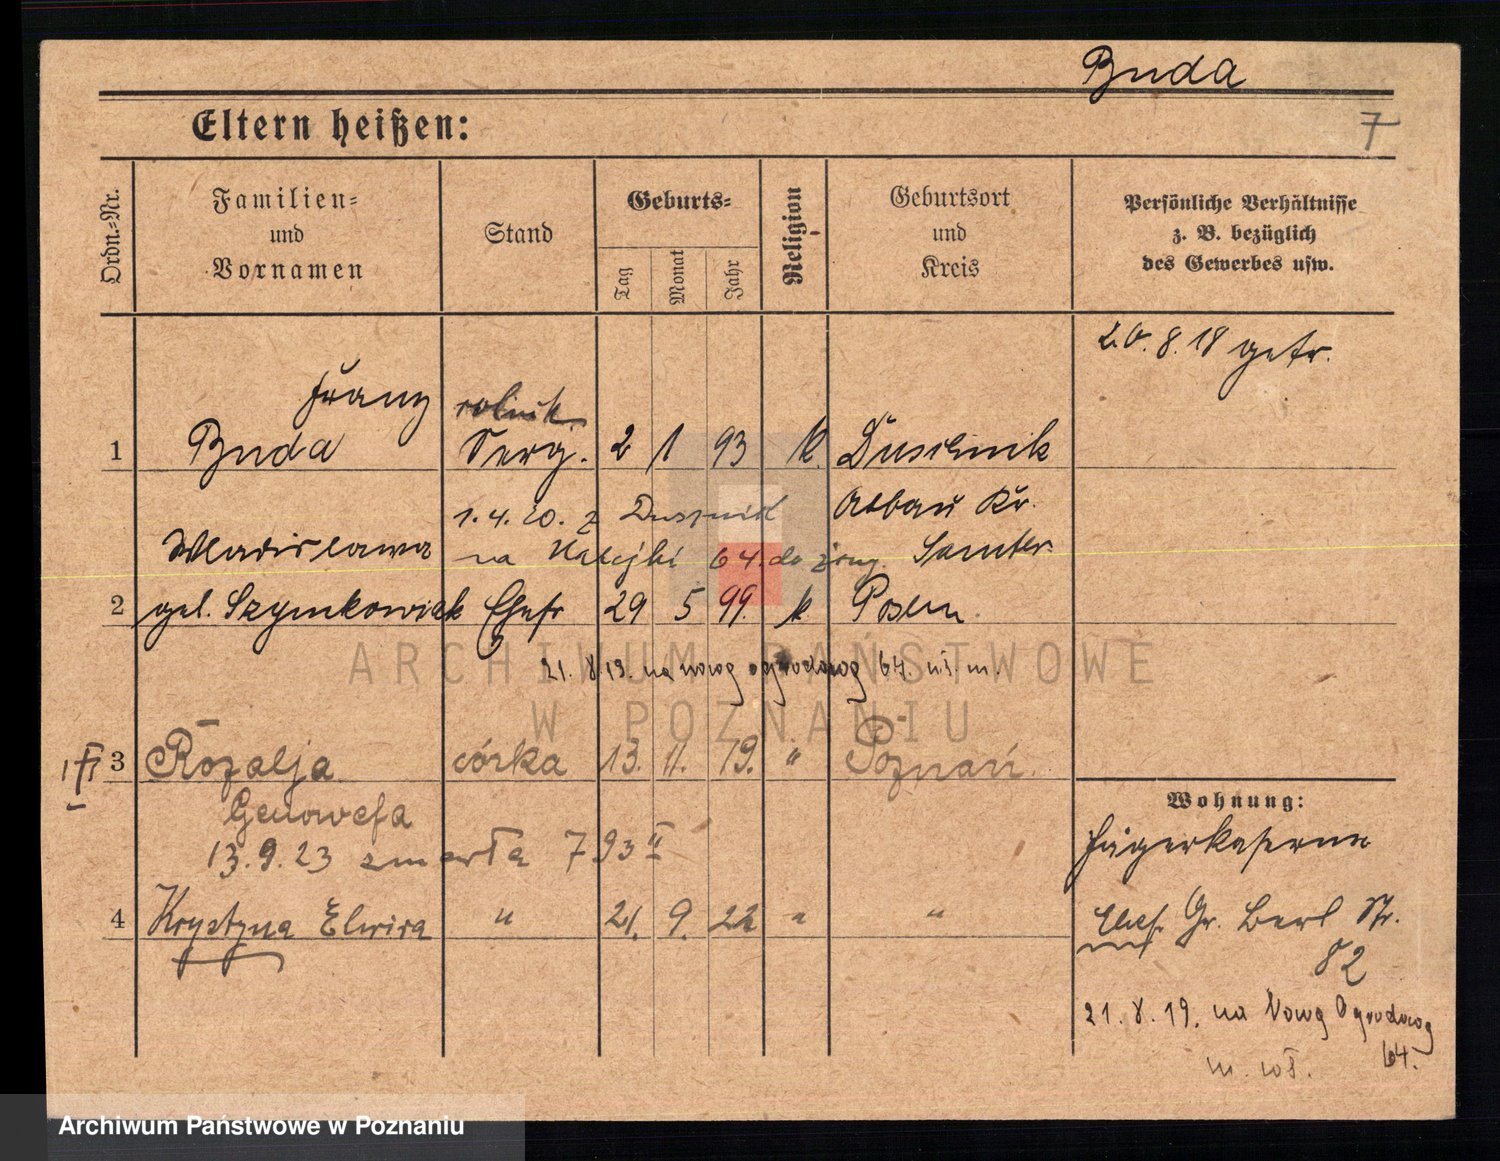 Buda
Eltern heißen:
7
Ordn.-Nr.
Familien- und Vornamen
Stand
Geburts-
Tag
Monat
Jahr
Religion
Geburtsort und Kreis
Persönliche Verhältnisse
z. B. bezüglich
des Gewerbes usw.
20.8.18 getr.
Franz rolnik
1 Buda Serg. 2 1 93 k. Duschnik
1.4.20. z Dusznik Abbau Kr.
Wladislawa na 64. do żony. Samter
2 geb. Szymkowiak Ehefr 29 5 99. k Posen.
21.8.19. na nową ogrodową 64. m.
3 Rozalja córka 13. 11. 19. " Poznań.
Genowefa
13.9.23 zmarła 793 II
4 Krystyna Elwira " 21. 9. 22 " "
Wohnung:
Jägerkaserne
Ehef. Gr. Berl Str.
82
21.8.19. na Nową Ogrodową
64.
m. wł.
ARCHIWUM PAŃSTWOWE
W POZNANIU
Archiwum Państwowe w Poznaniu